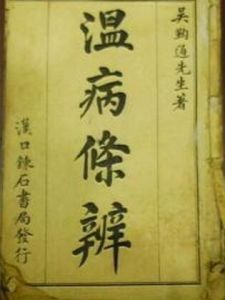 吳鞠通先生著
温病條辨
漢口錬石書局發行